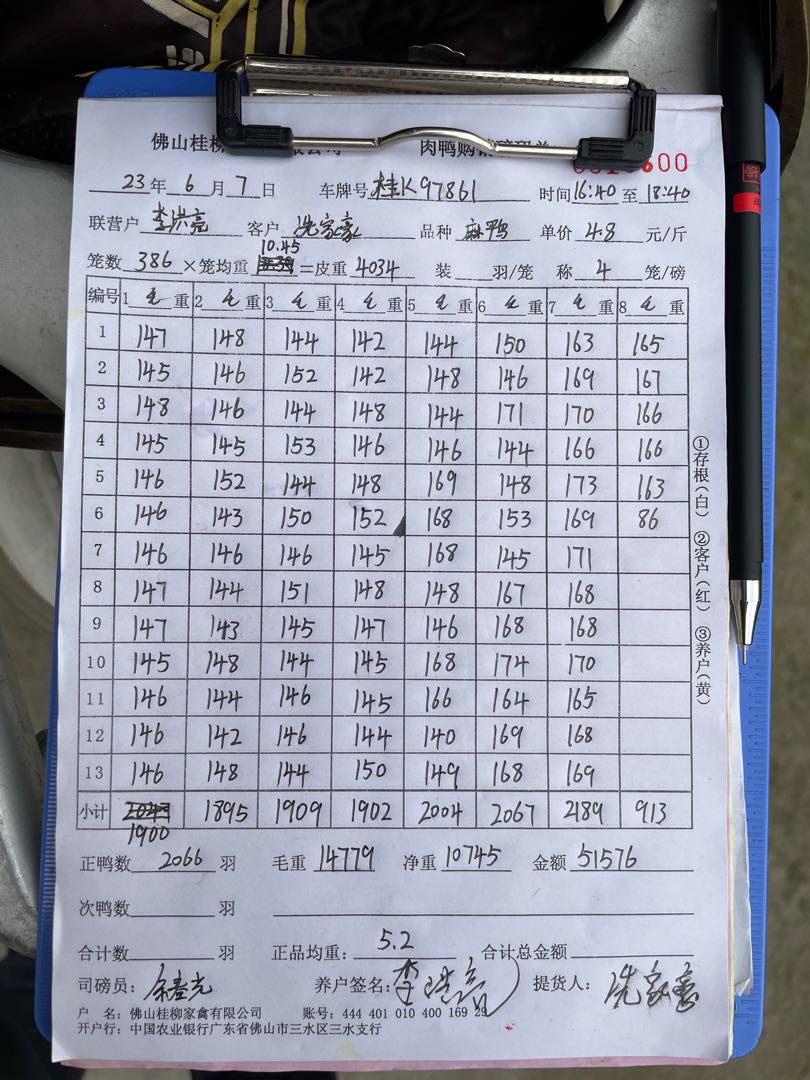 佛山桂柳 限公司 肉鸭购销磅码单 600
23年 6月 7日 车牌号桂K97861 时间16:40至18:40
联营户 李洪亮 客户 冼家豪 品种 麻鸭 单价 4.8 元/斤
10.45
笼数 386 ×笼均重 =皮重 4034 装 羽/笼 称 4 笼/磅
编号 1 毛 重 2 毛 重 3 毛 重 4 毛 重 5 毛 重 6 毛 重 7 毛 重 8 毛 重
1 147 148 144 142 144 150 163 165
2 145 146 152 142 148 146 169 167
3 148 146 144 148 144 171 170 166
4 145 145 153 146 146 144 166 166
5 146 152 144 148 169 148 173 163
6 146 143 150 152 168 153 169 86
7 146 146 146 145 168 145 171
8 147 144 151 148 148 167 168
9 147 143 145 147 146 168 168
10 145 148 144 145 168 174 170
11 146 144 146 145 166 164 165
12 146 142 146 144 140 169 168
13 146 148 144 150 149 168 169
小计 1895 1909 1902 2004 2067 2189 913
1900
①存根(白) ②客户(红) ③养户(黄)
正鸭数 2066 羽 毛重 14779 净重 10745 金额 51576
次鸭数 羽
合计数 羽 正品均重: 5.2 合计总金额
司磅员: 养户签名: 李洪亮 提货人: 冼家豪
户 名: 佛山桂柳家禽有限公司 账号: 444 401 010 400 169 29
开户行: 中国农业银行广东省佛山市三水区三水支行